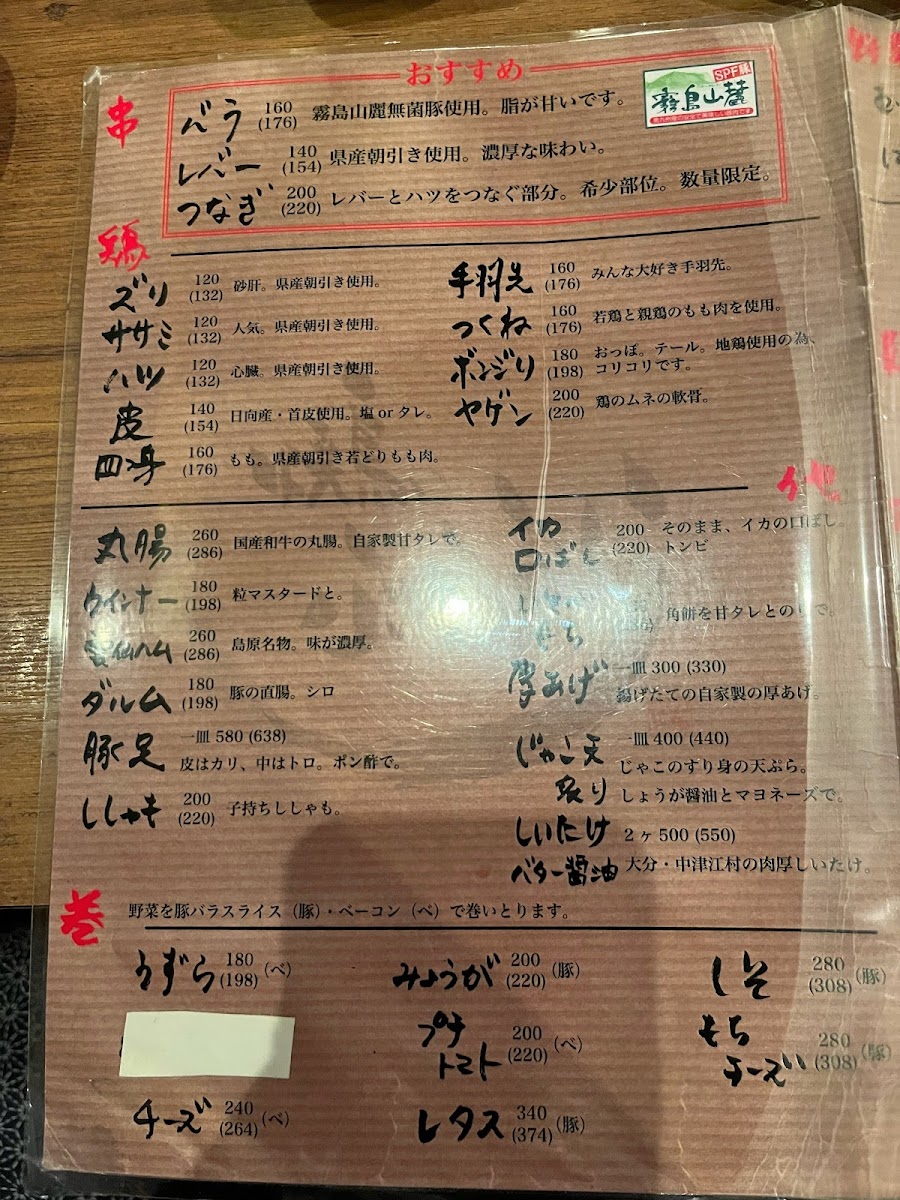 おすすめ
串
SPF豚
霧島山麓
バラ 160 (176) 霧島山麗無菌豚使用。脂が甘いです。
レバー 140 (154) 県産朝引き使用。濃厚な味わい。
つなぎ 200 (220) レバーとハツをつなぐ部分。希少部位。数量限定。
鶏
ズリ 120 (132) 砂肝。県産朝引き使用。
ササミ 120 (132) 人気。県産朝引き使用。
ハツ 120 (132) 心臓。県産朝引き使用。
皮 140 (154) 日向産・首皮使用。塩 or タレ。
四つ身 160 (176) もも。県産朝引き若どりもも肉。
手羽先 160 (176) みんな大好き手羽先。
つくね 160 (176) 若鶏と親鶏のもも肉を使用。
ボンジリ 180 (198) おっぽ。テール。地鶏使用の為、
コリコリです。
ヤゲン 200 (220) 鶏のムネの軟骨。
他
丸腸 260 (286) 国産和牛の丸腸。自家製甘タレで。
ウインナー 180 (198) 粒マスタードと。
雲仙ハム 260 (286) 島原名物。味が濃厚。
ダルム 180 (198) 豚の直腸。シロ
豚足 一皿 580 (638)
皮はカリ、中はトロ。ポン酢で。
ししゃも 200 (220) 子持ちししゃも。
イカ
口ばし 200 (220) そのまま、イカの口ばし。
トンビ
もち 角餅を甘タレとのりで。
厚あげ 一皿 300 (330)
揚げたての自家製の厚あげ。
じゃこ天 一皿 400 (440)
じゃこのすり身の天ぷら。
炙り しょうが醤油とマヨネーズで。
しいたけ 2ヶ 500 (550)
バター醤油 大分・中津江村の肉厚しいたけ。
巻
野菜を豚バラスライス（豚）・ベーコン（ベ）で巻いとります。
うずら 180 (198) （ベ）
チーズ 240 (264) （ベ）
みょうが 200 (220) （豚）
プチ
トマト 200 (220) （ベ）
レタス 340 (374) （豚）
しそ 280 (308) （豚）
もち
チーズ 280 (308) （豚）